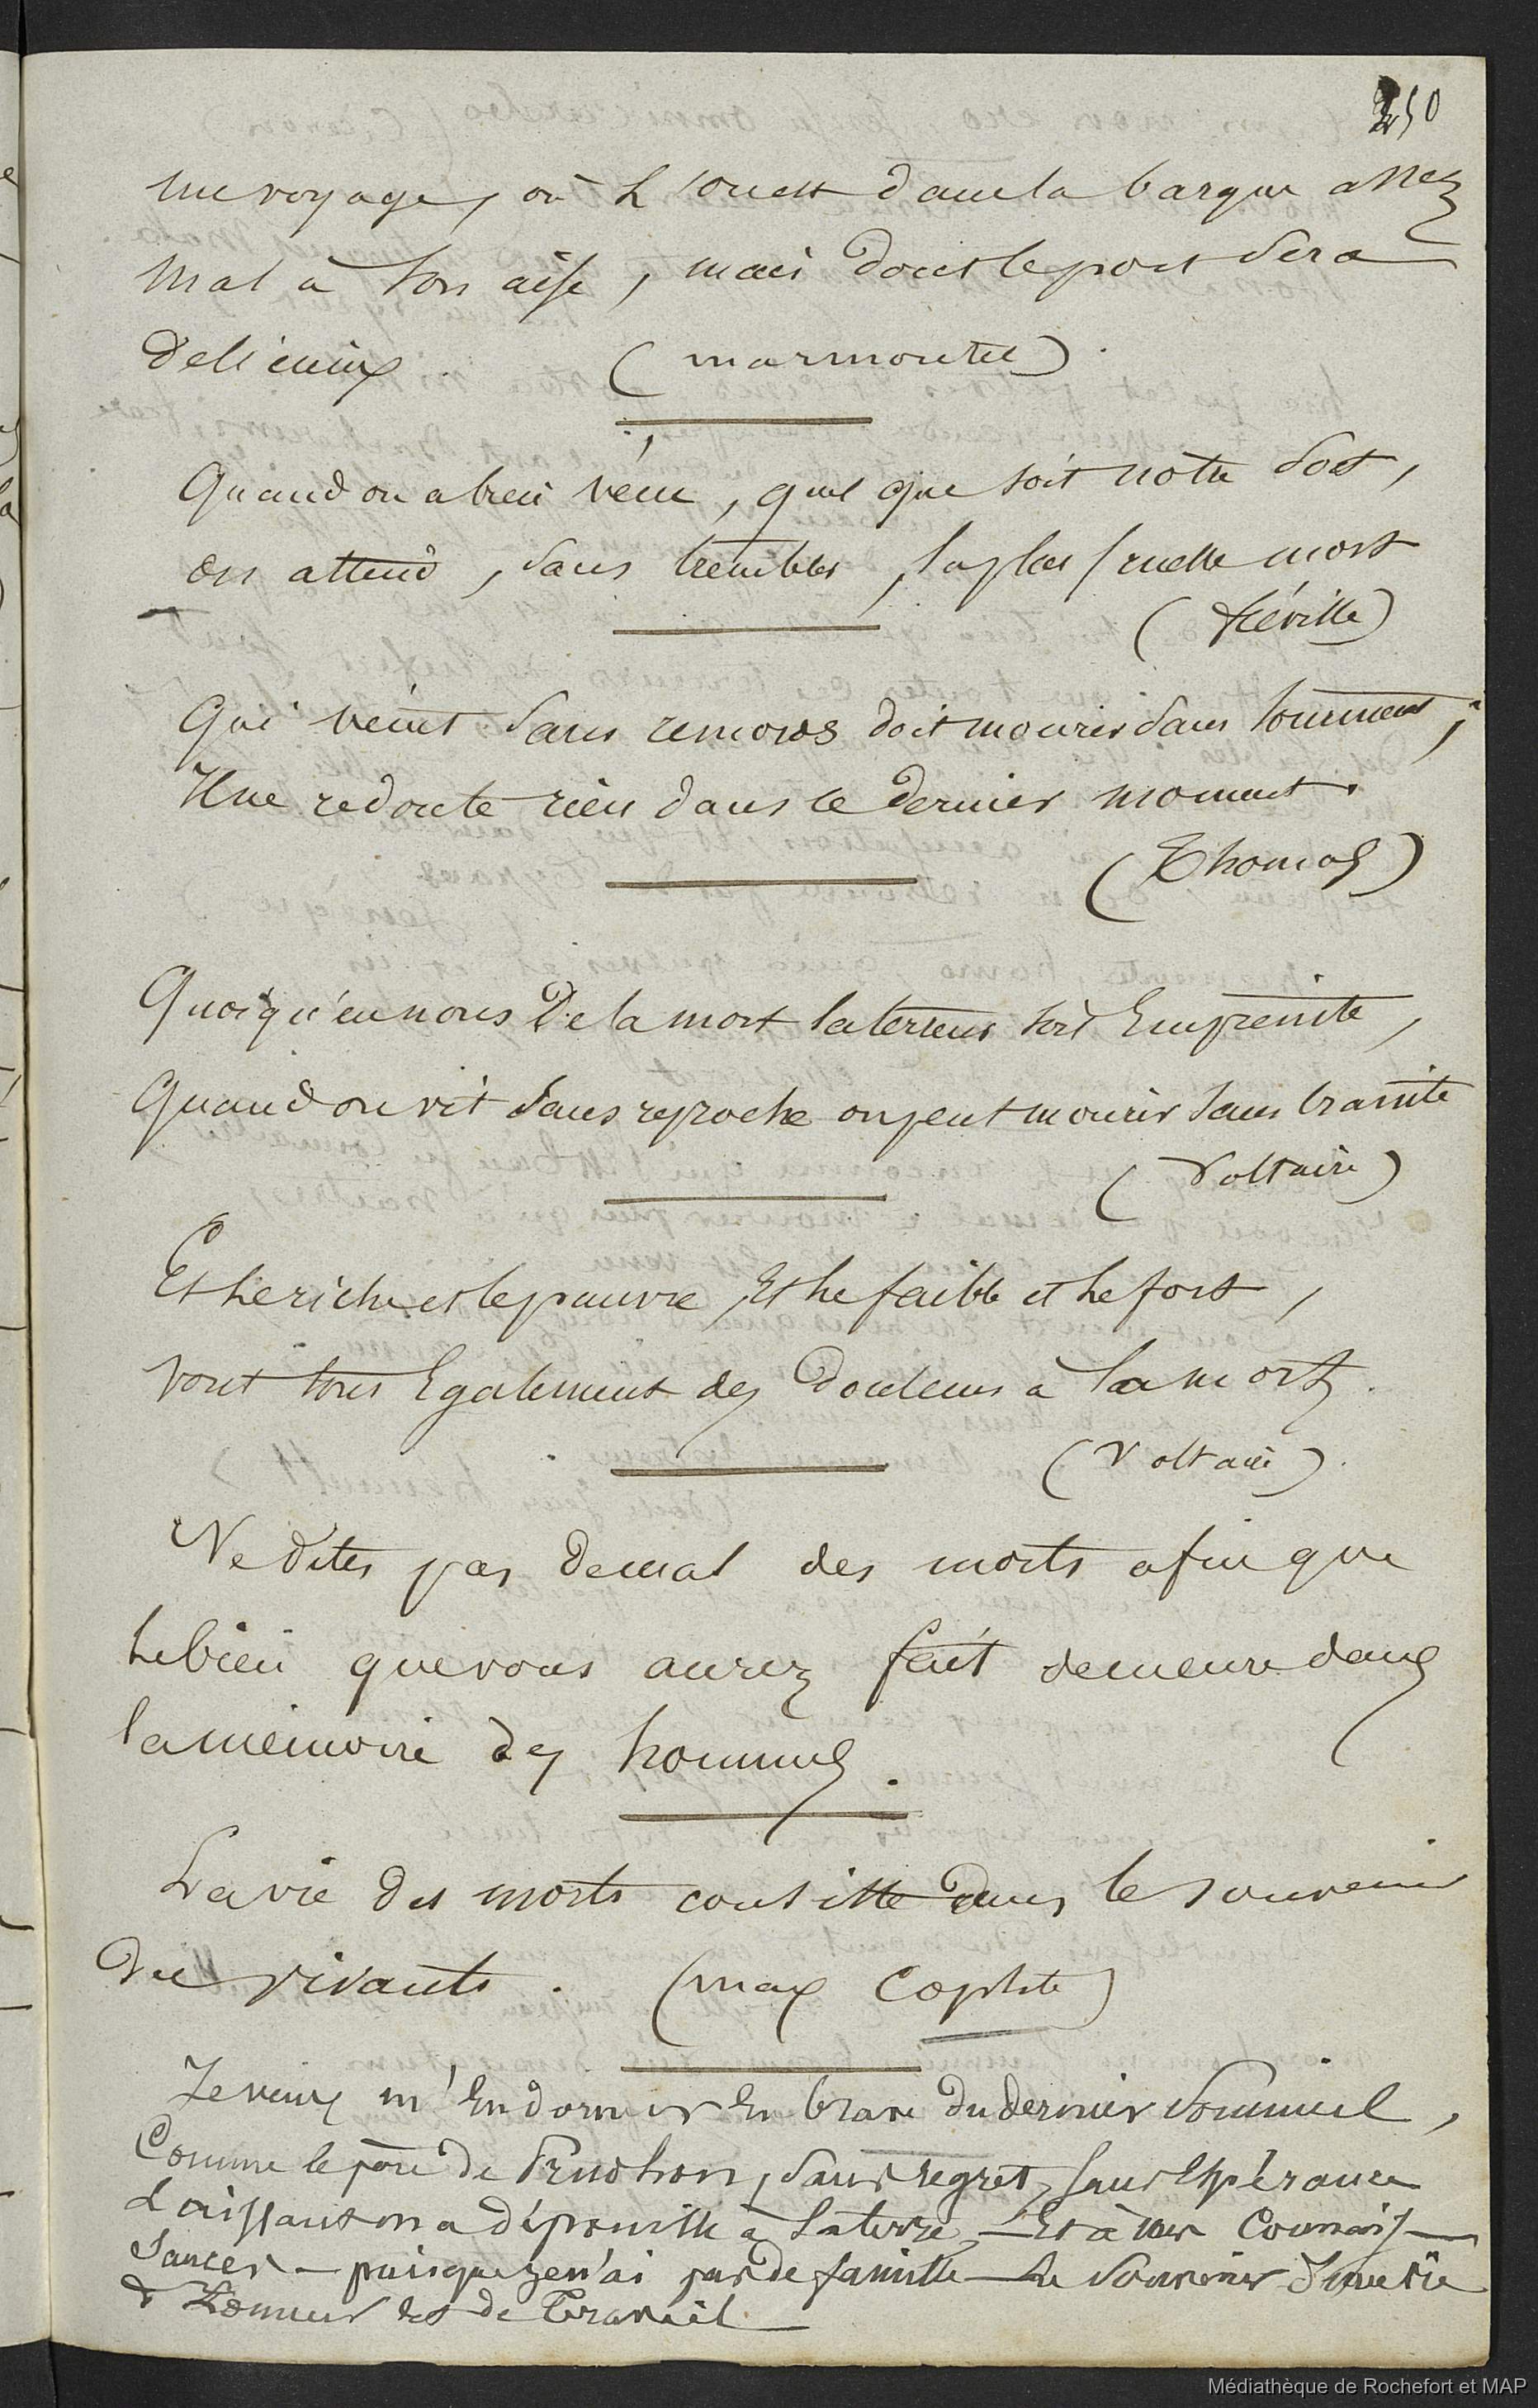 250
un voyage, où l'on est dans la barque assez
mal à son aise, mais dont le port sera
délicieux. (marmontel).
Quand on a bien vécu, quel que soit notre sort,
on attend, sans trembler, la plus cruelle mort
(Fréville)
Qui vécut sans remords doit mourir sans tourment;
Il ne redoute rien dans ce dernier moment.
(Thomas)
Quoiqu'en nous De la mort la terreur soit Empreinte,
Quand on vit sans reproche on peut mourir sans crainte
(Voltaire)
Et le riche et le pauvre, Et le faible et le fort,
vont tous Egalement des Douleurs à la mort.
(Voltaire).
Ne dites pas de mal des morts afin que
le bien que vous aurez fait demeure dans
la mémoire des hommes.
La vie des morts consiste dans le souvenir
des vivants. (max
Je veux m'Endormir En brave du dernier Sommeil,
Comme le père de Prudhon, sans regret, sans Espérance
Laissant ma dépouille à la terre, — Et à mes Connais-
sances — puisque je n'ai pas de famille — Le Souvenir d'une vie
d'Honneur et de Travail.
Médiathèque de Rochefort et MAP